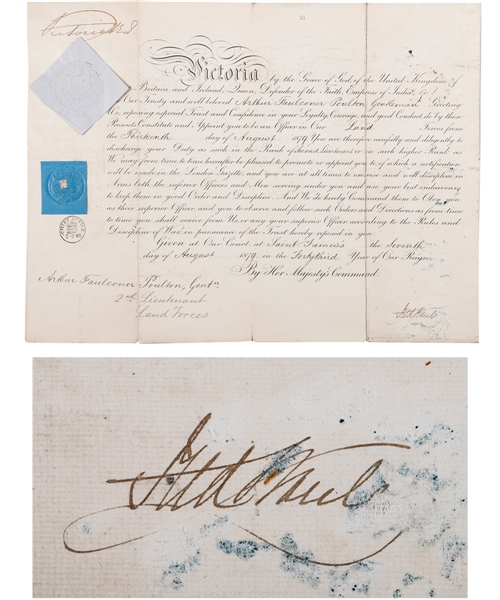 Victoria R
Victoria by the Grace of God, of the United Kingdom of
Britain and Ireland, Queen, Defender of the Faith, Empress of India,
Our Trusty and well beloved Arthur Faulconer Poulton Gentleman Greeting,
We, reposing especial Trust and Confidence in your Loyalty, Courage, and good Conduct, do by these
Presents, Constitute and Appoint you to be an Officer in Our Land Forces from
the Thirteenth day of August 1879. You are therefore carefully and diligently to
discharge your Duty as such in the Rank of Second Lieutenant or in such higher Rank as
We may from time to time hereafter be pleased to promote or appoint you to, of which a notification
will be made in the London Gazette, and you are at all times to exercise and well discipline in
Arms both the inferior Officers and Men serving under you and use your best endeavours
to keep them in good Order and Discipline. And We do hereby Command them to Obey you
as their superior Officer, and you to observe and follow such Orders and Directions as from time
to time you shall receive from Us, or any your superior Officer, according to the Rules and
Discipline of War, in pursuance of the Trust hereby reposed in you.
Given at Our Court, at Saint James's the Seventh
day of August 1879 in the Forty third Year of Our Reign
By Her Majesty's Command.
Arthur Faulconer Poulton, Gent n
2nd Lieutenant
Land Forces